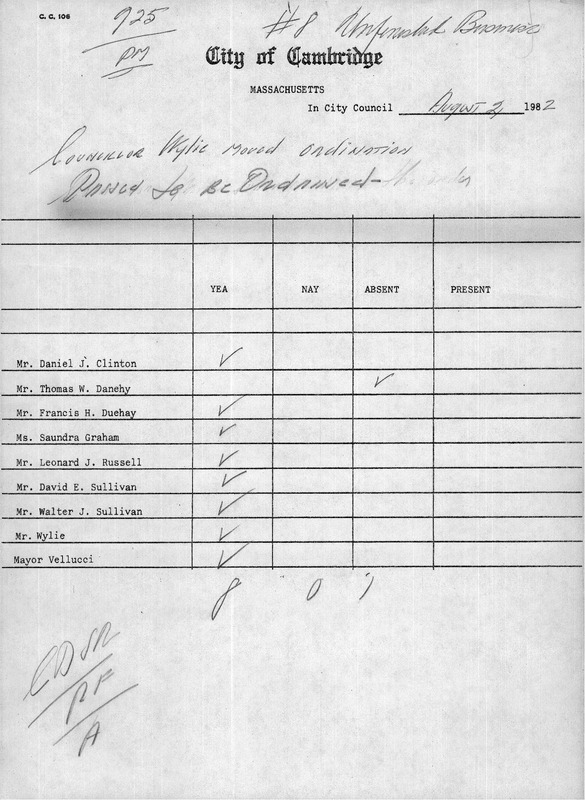 C. C. 106
925
PM
#8 Unfinished Business
City of Cambridge
MASSACHUSETTS
In City Council August 2, 1982
Councillor Wylie moved ordination
Passed to be Ordained-
YEA NAY ABSENT PRESENT
Mr. Daniel J. Clinton ✓
Mr. Thomas W. Danehy ✓
Mr. Francis H. Duehay ✓
Ms. Saundra Graham ✓
Mr. Leonard J. Russell ✓
Mr. David E. Sullivan ✓
Mr. Walter J. Sullivan ✓
Mr. Wylie ✓
Mayor Vellucci ✓
8 0 1